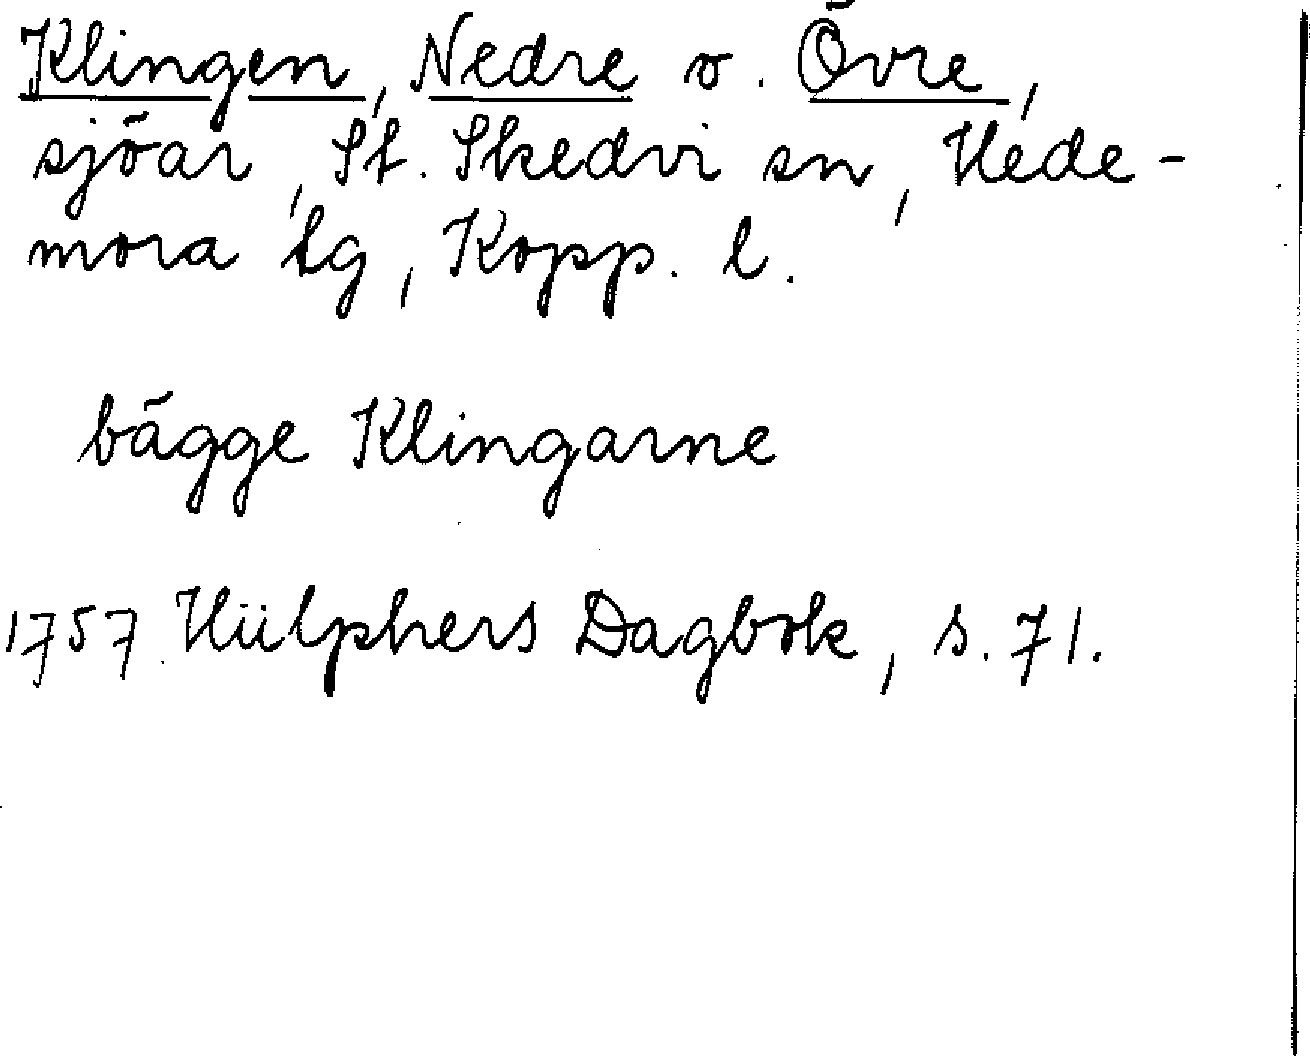 Klingen, Nedre o. Övre,
sjöar, St. Skedvi sn, Hede-
mora tg, Kopp. l.
bägge Klingarne
1757 Hülphers Dagbok, s. 71.